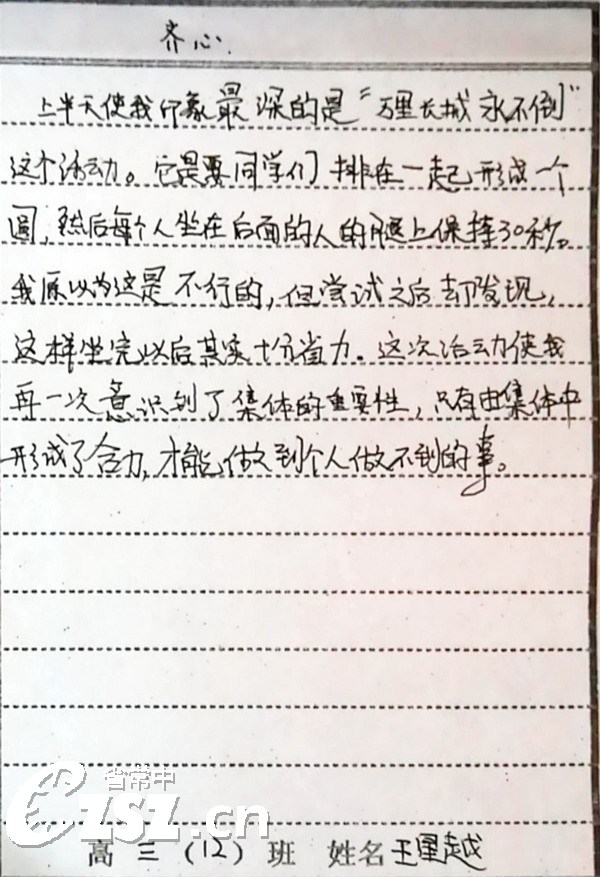 齐心.
上半天使我印象最深的是“万里长城永不倒”
这个活动。它是要同学们排在一起形成一个
圆,然后每个人坐在后面的人的腿上保持30秒。
我原以为这是不行的,但尝试之后却发现,
这样坐完以后其实十分省力。这次活动使我
再一次意识到了集体的重要性,只有由集体中
形成了合力,才能做到个人做不到的事。
省常中
CZSZ.cn
高三(12)班 姓名王星越